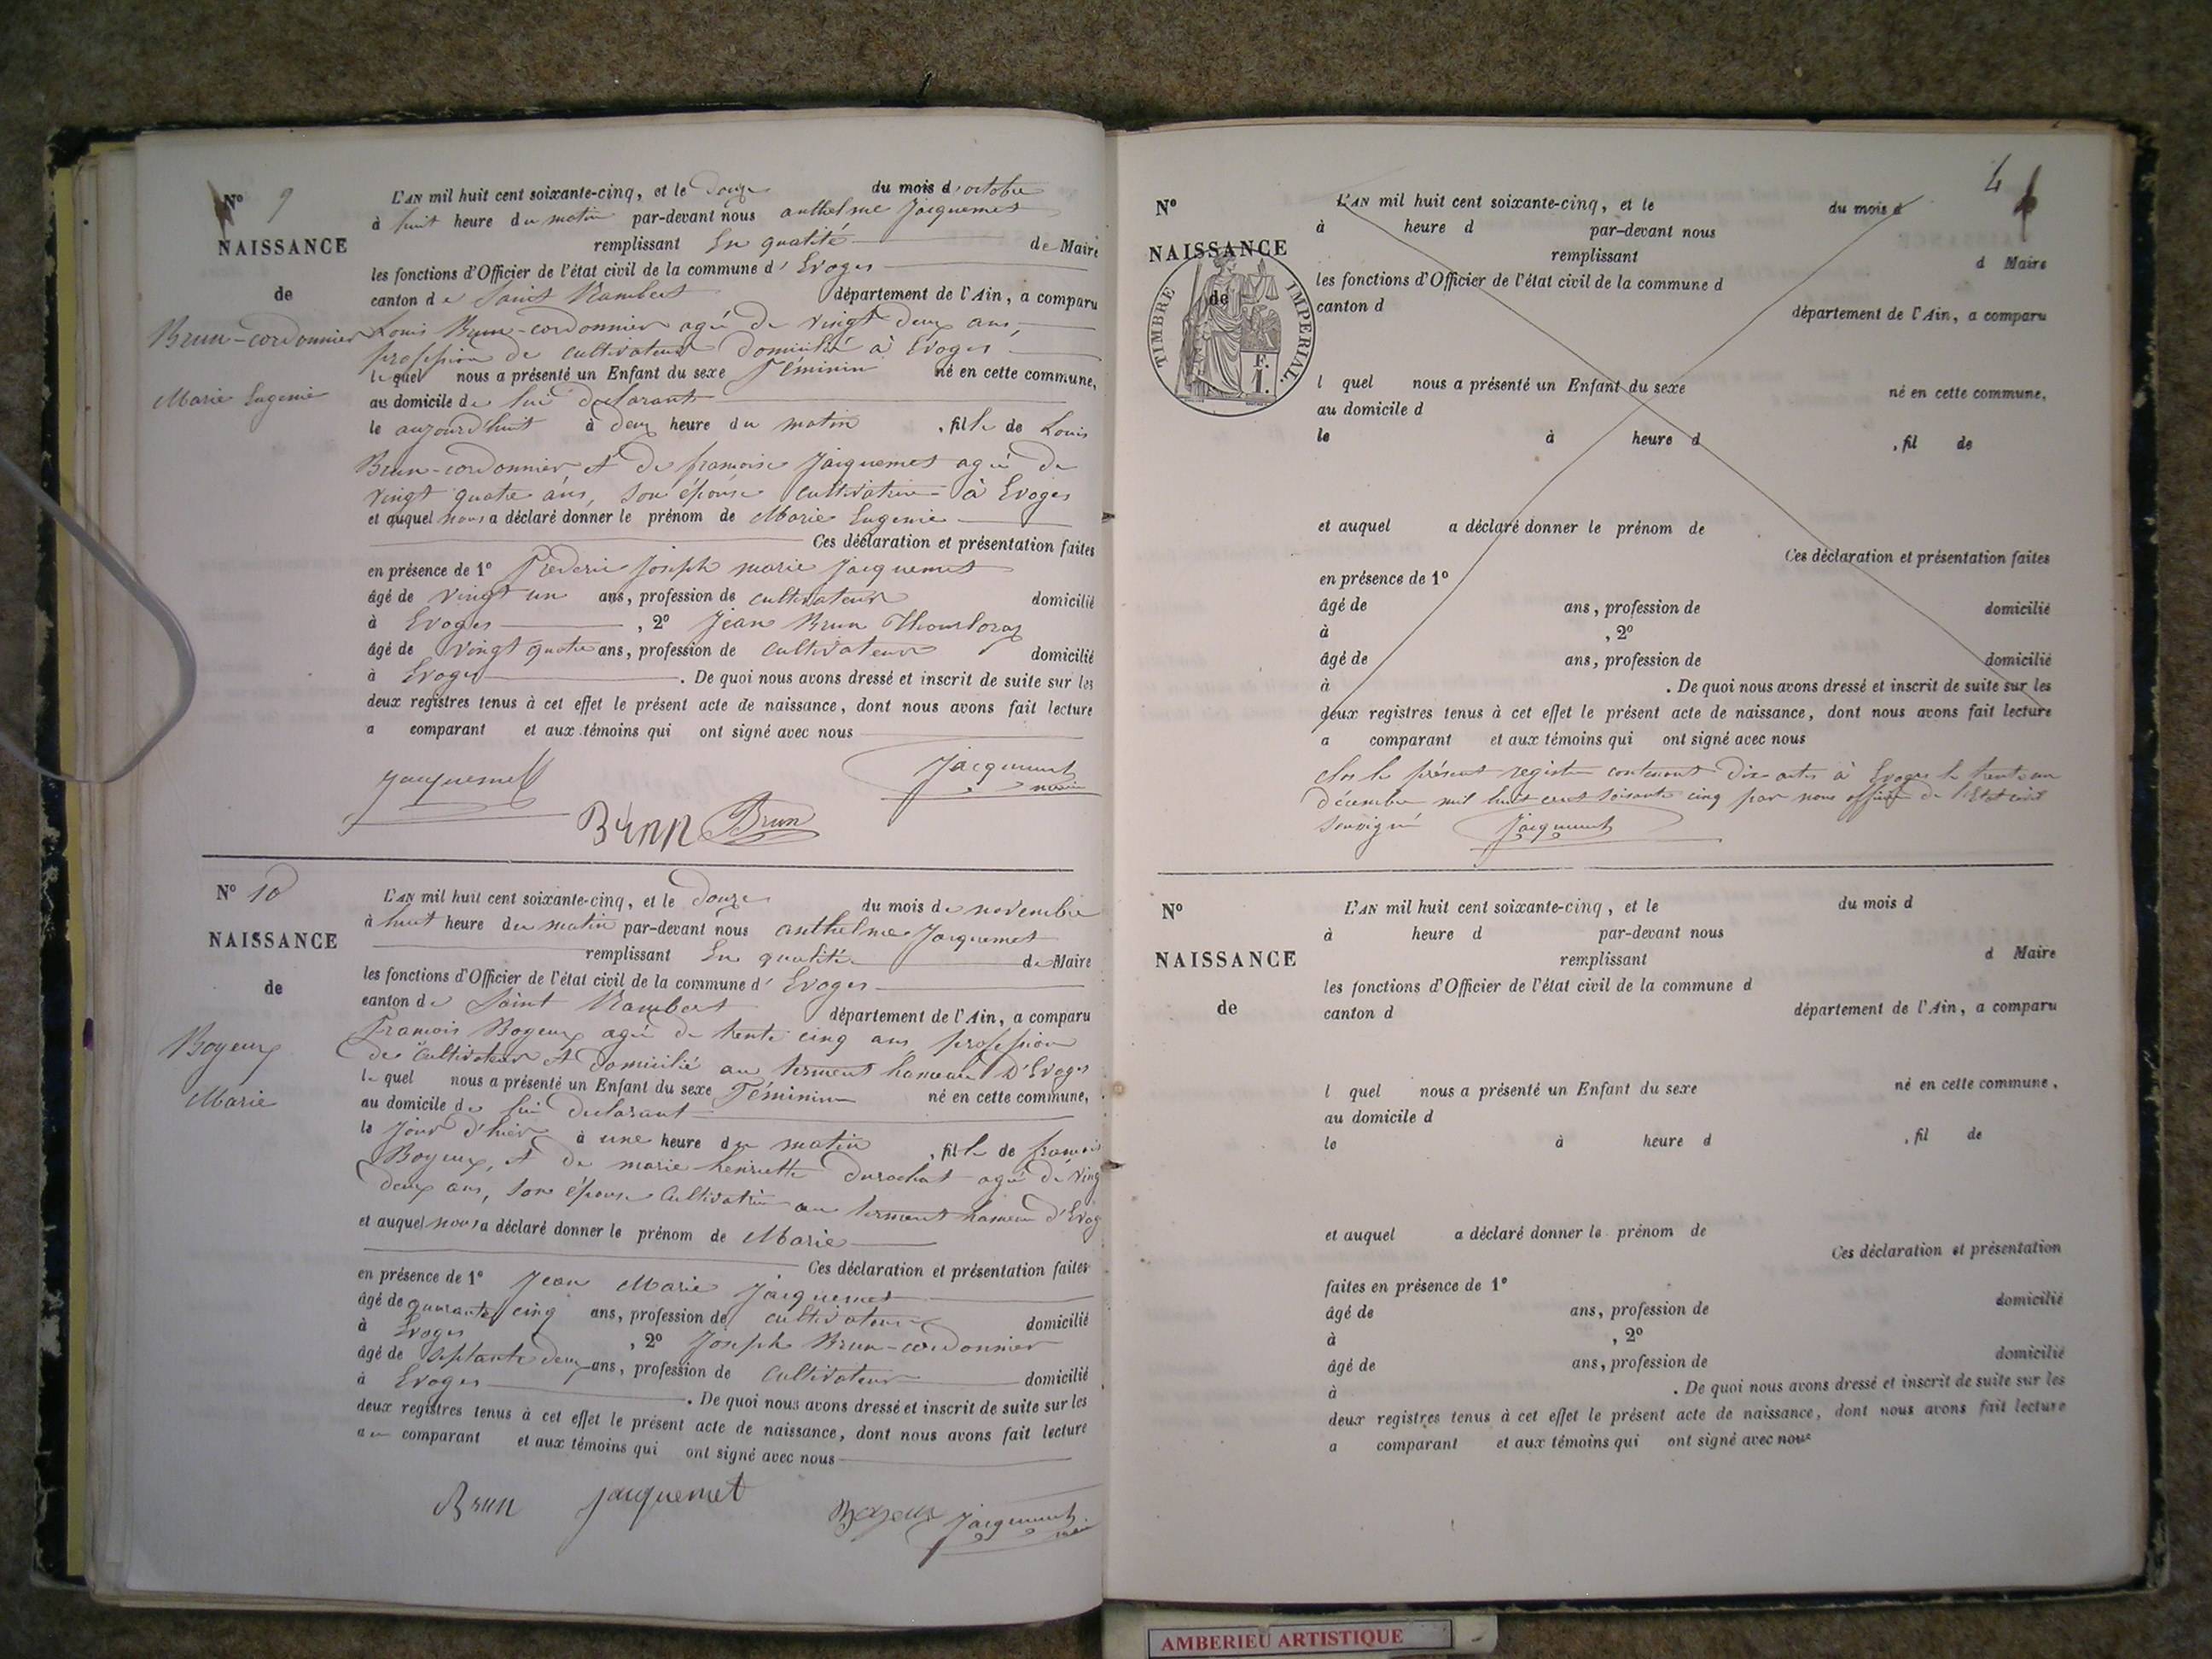 N° 9
NAISSANCE
de
Brun-cordonnier
Marie Eugenie
L'AN mil huit cent soixante-cinq, et le douze du mois d'octobre
à huit heure du matin par-devant nous anthelme Jacquemet
remplissant En qualité de Maire
les fonctions d'Officier de l'état civil de la commune d'Evoges
canton de Saint Rambert département de l'Ain, a comparu
Louis Brun-cordonnier agé de vingt deux ans,
profession de cultivateur domicilié à Evoges
lequel nous a présenté un Enfant du sexe Féminin né en cette commune,
au domicile de lui déclarant
le aujourd'huit à deux heure du matin, fille de Louis
Brun-cordonnier et de francoise Jacquemet agée de
vingt quatre ans, son épouse cultivatrice à Evoges
et auquel nous a déclaré donner le prénom de Marie Eugenie
Ces déclaration et présentation faites
en présence de 1° Frederic Joseph marie Jacquemet
âgé de vingt un ans, profession de cultivateur domicilié
à Evoges, 2° Jean Brun
âgé de vingt quatre ans, profession de cultivateur domicilié
à Evoges. De quoi nous avons dressé et inscrit de suite sur les
deux registres tenus à cet effet le présent acte de naissance, dont nous avons fait lecture
a comparant et aux témoins qui ont signé avec nous
Jacquemet
Jacquemet
maire
Brun Brun
N° 10
NAISSANCE
de
Boyeux
Marie
L'AN mil huit cent soixante-cinq, et le douze du mois de novembre
à huit heure du matin par-devant nous anthelme Jacquemet
remplissant En qualité de Maire
les fonctions d'Officier de l'état civil de la commune d'Evoges
canton de Saint Rambert département de l'Ain, a comparu
Francois Boyeux agé de trente cinq ans profession
de cultivateur et domicilié au terment hameau D'Evoges
lequel nous a présenté un Enfant du sexe Féminin né en cette commune,
au domicile de lui declarant
le Jour d'hier à une heure du matin, fille de francois
Boyeux, et de marie henriette durochat agée de ving
deux ans, son épouse Cultivatrice au terment hameau d'Evog
et auquel nous a déclaré donner le prénom de Marie
Ces déclaration et présentation faites
en présence de 1° Jean Marie Jacquemet
âgé de quarante cinq ans, profession de cultivateur domicilié
à Evoges, 2° Joseph Brun-cordonnier
âgé de septante deux ans, profession de cultivateur domicilié
à Evoges. De quoi nous avons dressé et inscrit de suite sur les
deux registres tenus à cet effet le présent acte de naissance, dont nous avons fait lecture
au comparant et aux témoins qui ont signé avec nous
Brun Jacquemet Boyeux Jacquemet
maire
4
N°
NAISSANCE
de
TIMBRE IMPERIAL.
F.
1.
L'AN mil huit cent soixante-cinq, et le du mois d
à heure d par-devant nous
remplissant d Maire
les fonctions d'Officier de l'état civil de la commune d
canton d département de l'Ain, a comparu
l quel nous a présenté un Enfant du sexe né en cette commune,
au domicile d
le à heure d, fil de
et auquel a déclaré donner le prénom de
Ces déclaration et présentation faites
en présence de 1°
âgé de ans, profession de domicilié
à, 2°
âgé de ans, profession de domicilié
à. De quoi nous avons dressé et inscrit de suite sur les
deux registres tenus à cet effet le présent acte de naissance, dont nous avons fait lecture
a comparant et aux témoins qui ont signé avec nous
clos le présent registre contenant dix actes à Evoges le trente un
décembre mil huit cent soixante cinq par nous officier de l'Etat civil
Jacquemet
N°
NAISSANCE
de
L'AN mil huit cent soixante-cinq, et le du mois d
à heure d par-devant nous
remplissant d Maire
les fonctions d'Officier de l'état civil de la commune d
canton d département de l'Ain, a comparu
l quel nous a présenté un Enfant du sexe né en cette commune,
au domicile d
le à heure d, fil de
et auquel a déclaré donner le prénom de
Ces déclaration et présentation
faites en présence de 1°
âgé de ans, profession de domicilié
à, 2°
âgé de ans, profession de domicilié
à. De quoi nous avons dressé et inscrit de suite sur les
deux registres tenus à cet effet le présent acte de naissance, dont nous avons fait lecture
a comparant et aux témoins qui ont signé avec nous
AMBERIEU ARTISTIQUE